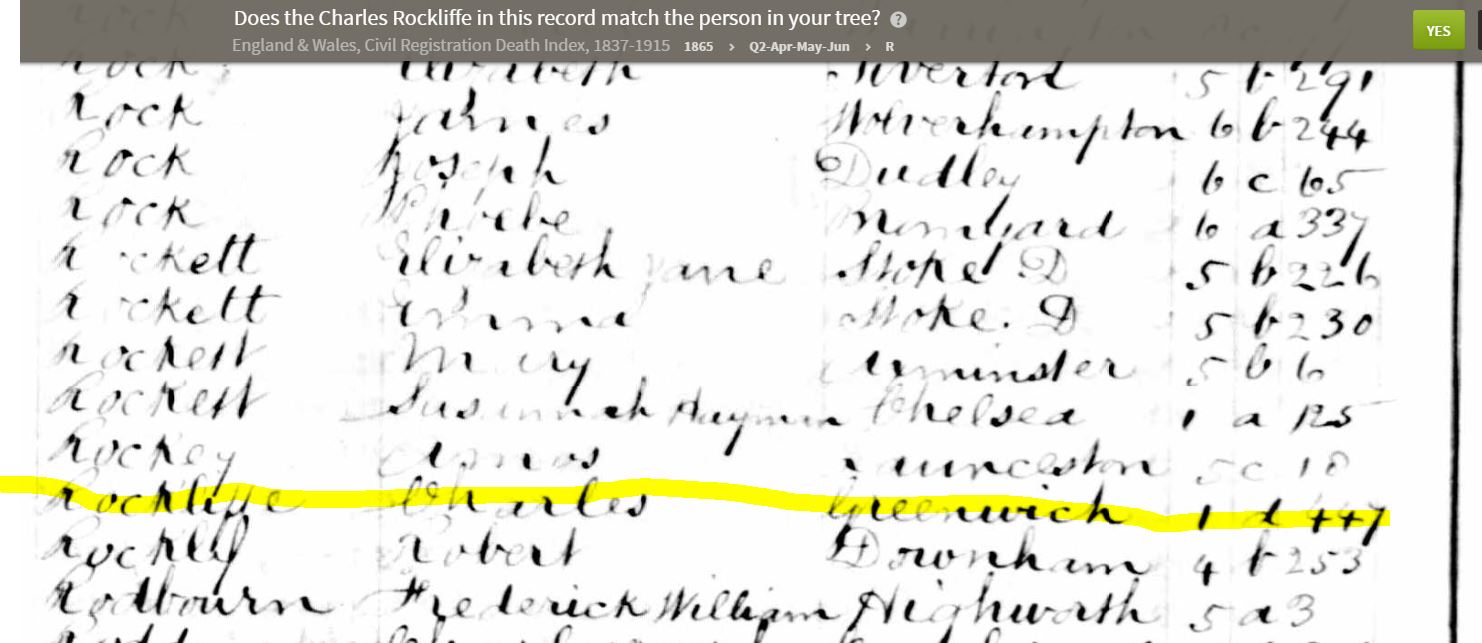 Does the Charles Rockliffe in this record match the person in your tree? ?
England & Wales, Civil Registration Death Index, 1837-1915 1865 > Q2-Apr-May-Jun > R
YES
Rock Elizabeth Tiverton 5 b 291
Rock James Wolverhampton 6 b 244
Rock Joseph Dudley 6 c 65
Rock Phoebe 6 a 337
Rockett Elizabeth Jane Stoke D 5 b 226
Rockett Emma Stoke. D 5 b 230
Rockett Mary Axminster 5 b 6
Rockett Susannah Chelsea 1 a 125
Rockey Launceston 5 c 18
Rockliffe Charles Greenwich 1 d 447
Robert Downham 4 b 253
Rodbourn Frederick William Highworth 5 a 3